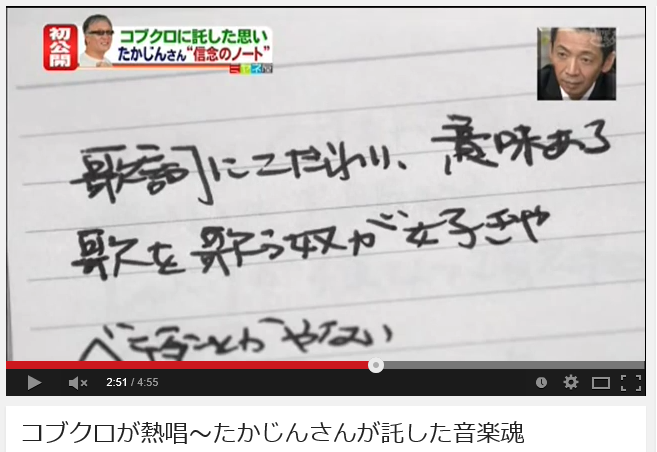 初公開
コブクロに託した思い
たかじんさん“信念のノート”
ミヤネ屋
歌詞にこだわり、意味ある
歌を歌う奴が好きや
やない
2:51 / 4:55
コブクロが熱唱～たかじんさんが託した音楽魂